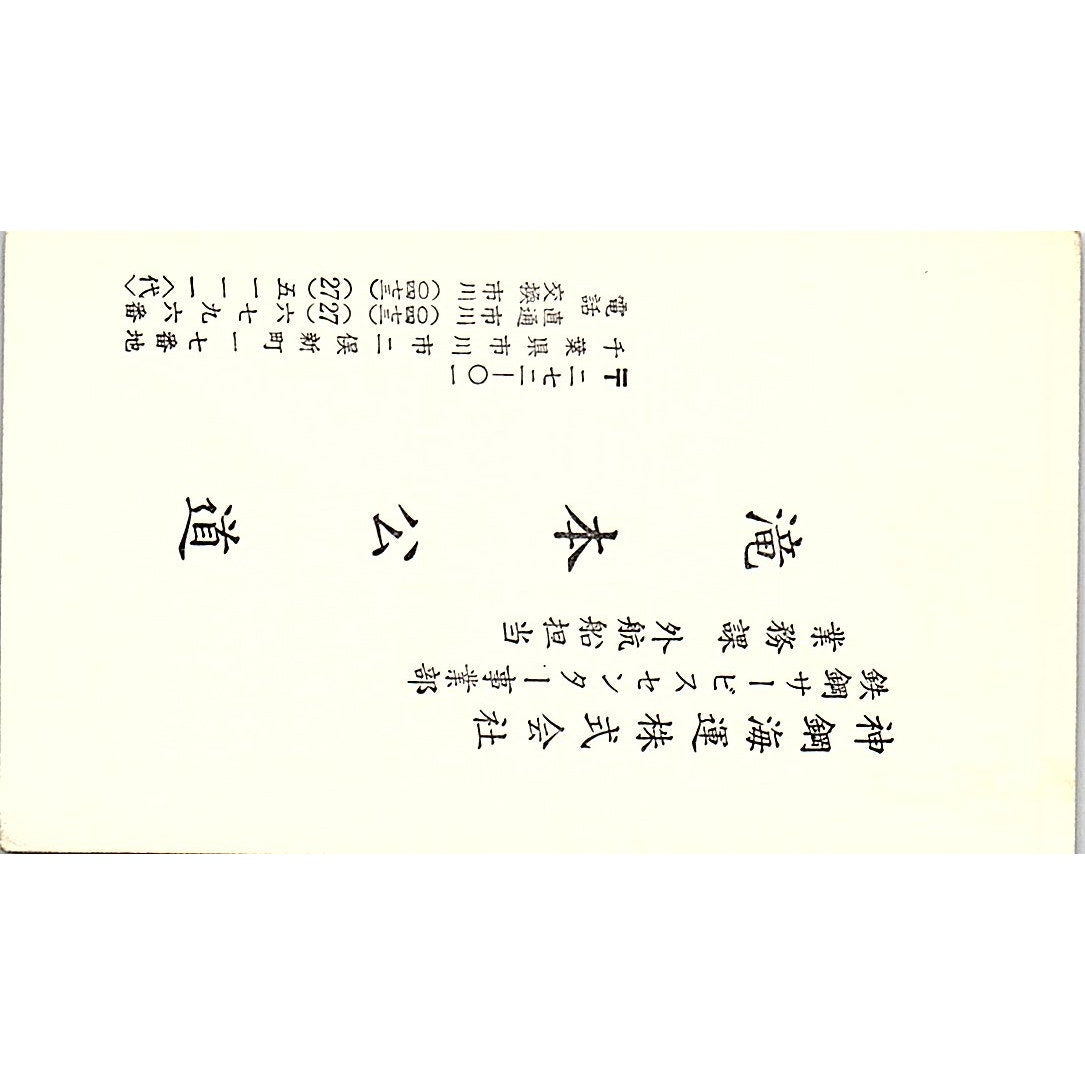 神鋼海運株式会社
鉄鋼サービスセンター事業部
業務課 外航船担当
滝本公道
〒二七二―〇一
千葉県市川市二俣新町一七番地
電話 直通 市川(〇四七三)(27)六七九六番
交換 市川(〇四七三)(27)五一一一〈代〉